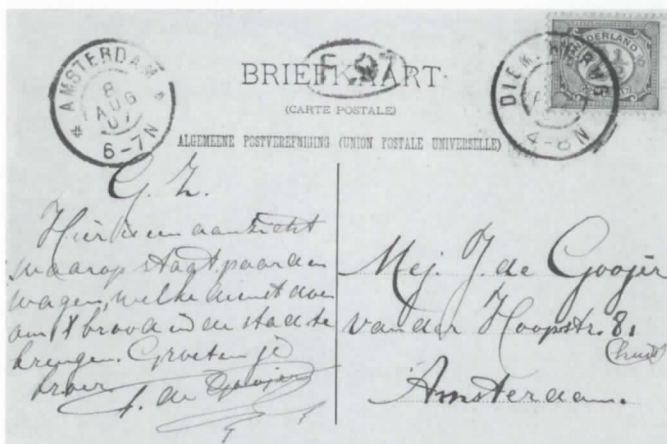 AMSTERDAM
8
AUG
07
6-7N
BRIEFKAART
(CARTE POSTALE)
ALGEMEENE POSTVEREENIGING (UNION POSTALE UNIVERSELLE)
NEDERLAND
4-8N
G. Z.
Hier is een aanzicht
waarop staat paard en
wagen, welke dienst doen
om 't brood in de stad te
brengen. Groeten je
broer
J. de Gooijer
Mej. J. de Gooijer
van der Hoopstr. 81
(huis)
Amsterdam.